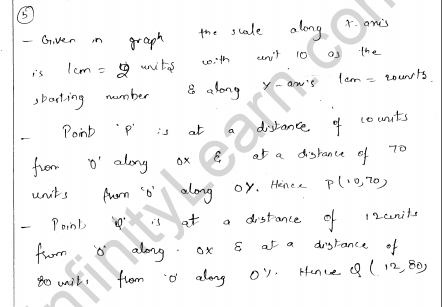 5
- Given in graph the scale along x-axis
is 1cm = 2 units with unit 10 as the
starting number & along Y-axis 1cm = 20 units.
- Point 'P' is at a distance of 10 units
from 'O' along OX & at a distance of 70
units from 'O' along OY. Hence P(10,70)
- Point 'Q' is at a distance of 12 units
from 'O' along OX & at a distance of
80 units from 'O' along OY. Hence Q (12,80)
infinityLearn.com